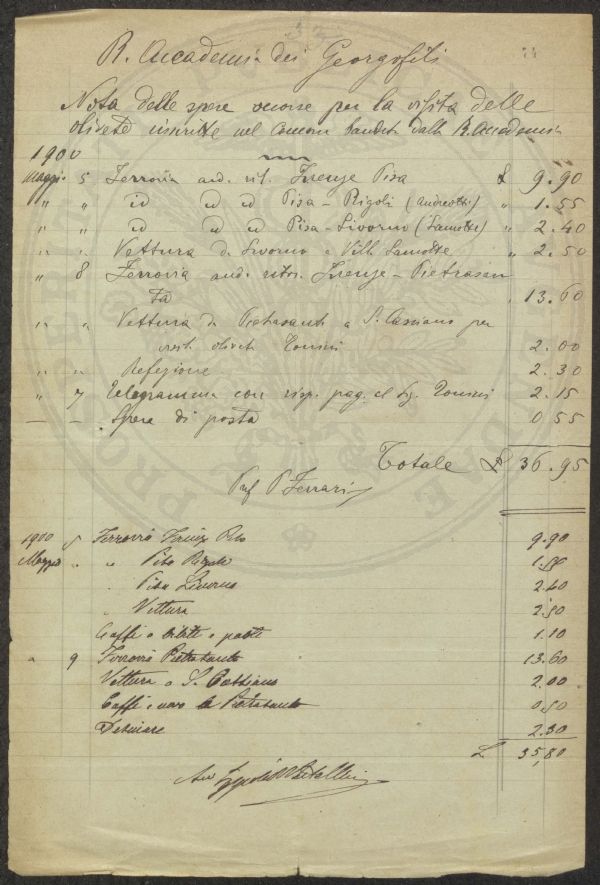 R. Accademia dei Georgofili
Nota delle spese occorse per la visita delle
olivete inscritte nel Concorso bandito dalla R. Accademia
1900
Maggio 5 Ferrovia and. rit. Firenze Pisa £ 9.90
" " id id id Pisa - Rigoli (Andreotti) " 1.55
" " id id id Pisa - Livorno (Lamotte) " 2.40
" " Vettura da Livorno a Villa Lamotte " 2.50
" 8 Ferrovia and. ritor. Firenze - Pietrasan
ta " 13.60
" " Vettura da Pietrasanta a S. Cassiano per
visit. oliveta Tonini 2.00
" " Refezione 2.30
" 7 Telegramma con risp. pag. al Sig. Tonini 2.15
— — Spesa di posta 0.55
Totale £ 36.95
Prof P Ferrari
1900 5 Ferrovia Firenze Pisa 9.90
Maggio " " Pisa Rigoli
" Pisa Livorno 2.40
" Vettura 2.50
Caffè e bibite e 1.10
" 9 Ferrovia Pietrasanta 13.60
Vettura a S. Cassiano 2.00
Caffè e uova a Pietrasanta 0.50
Desinare 2.30
L. 35,80